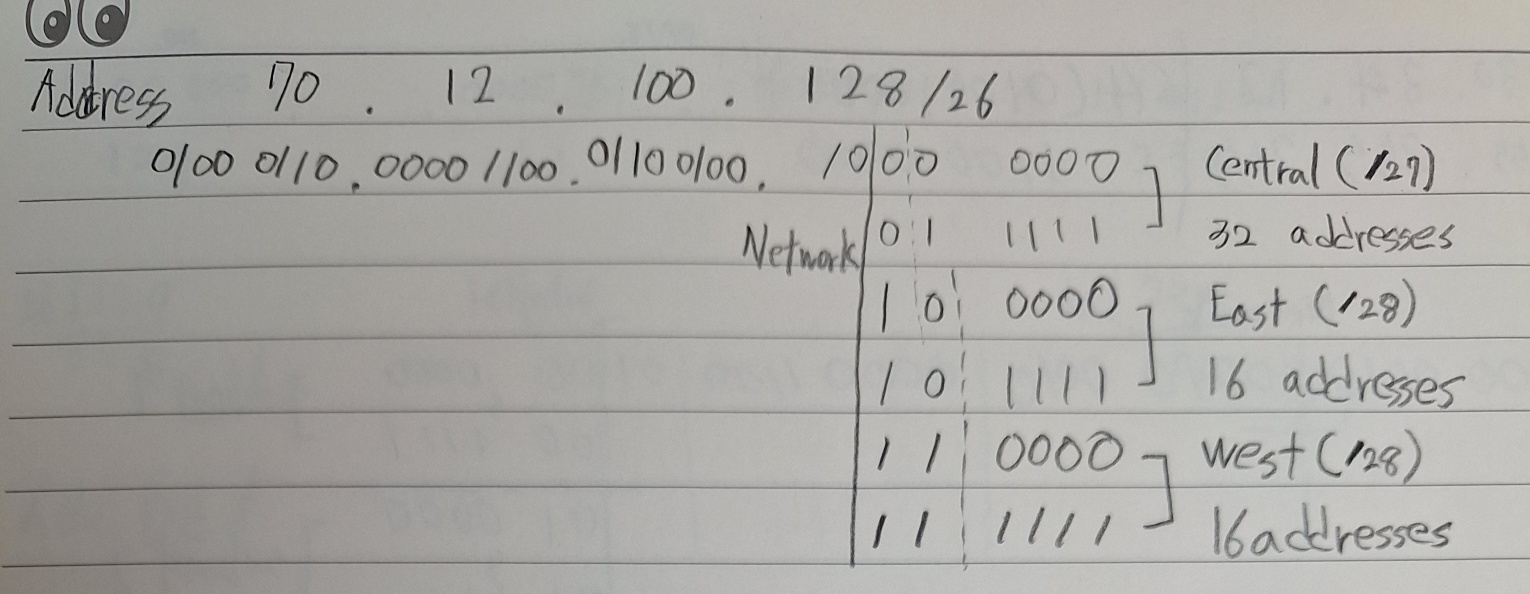 Address 70 . 12 . 100 . 128/26
0100 0110 . 0000 1100 . 0110 0100 . 10 0 0 0000 Central (/27)
Network 0 1 1111 32 addresses
1 0 0000 East (/28)
1 0 1111 16 addresses
1 1 0000 West (/28)
1 1 1111 16 addresses